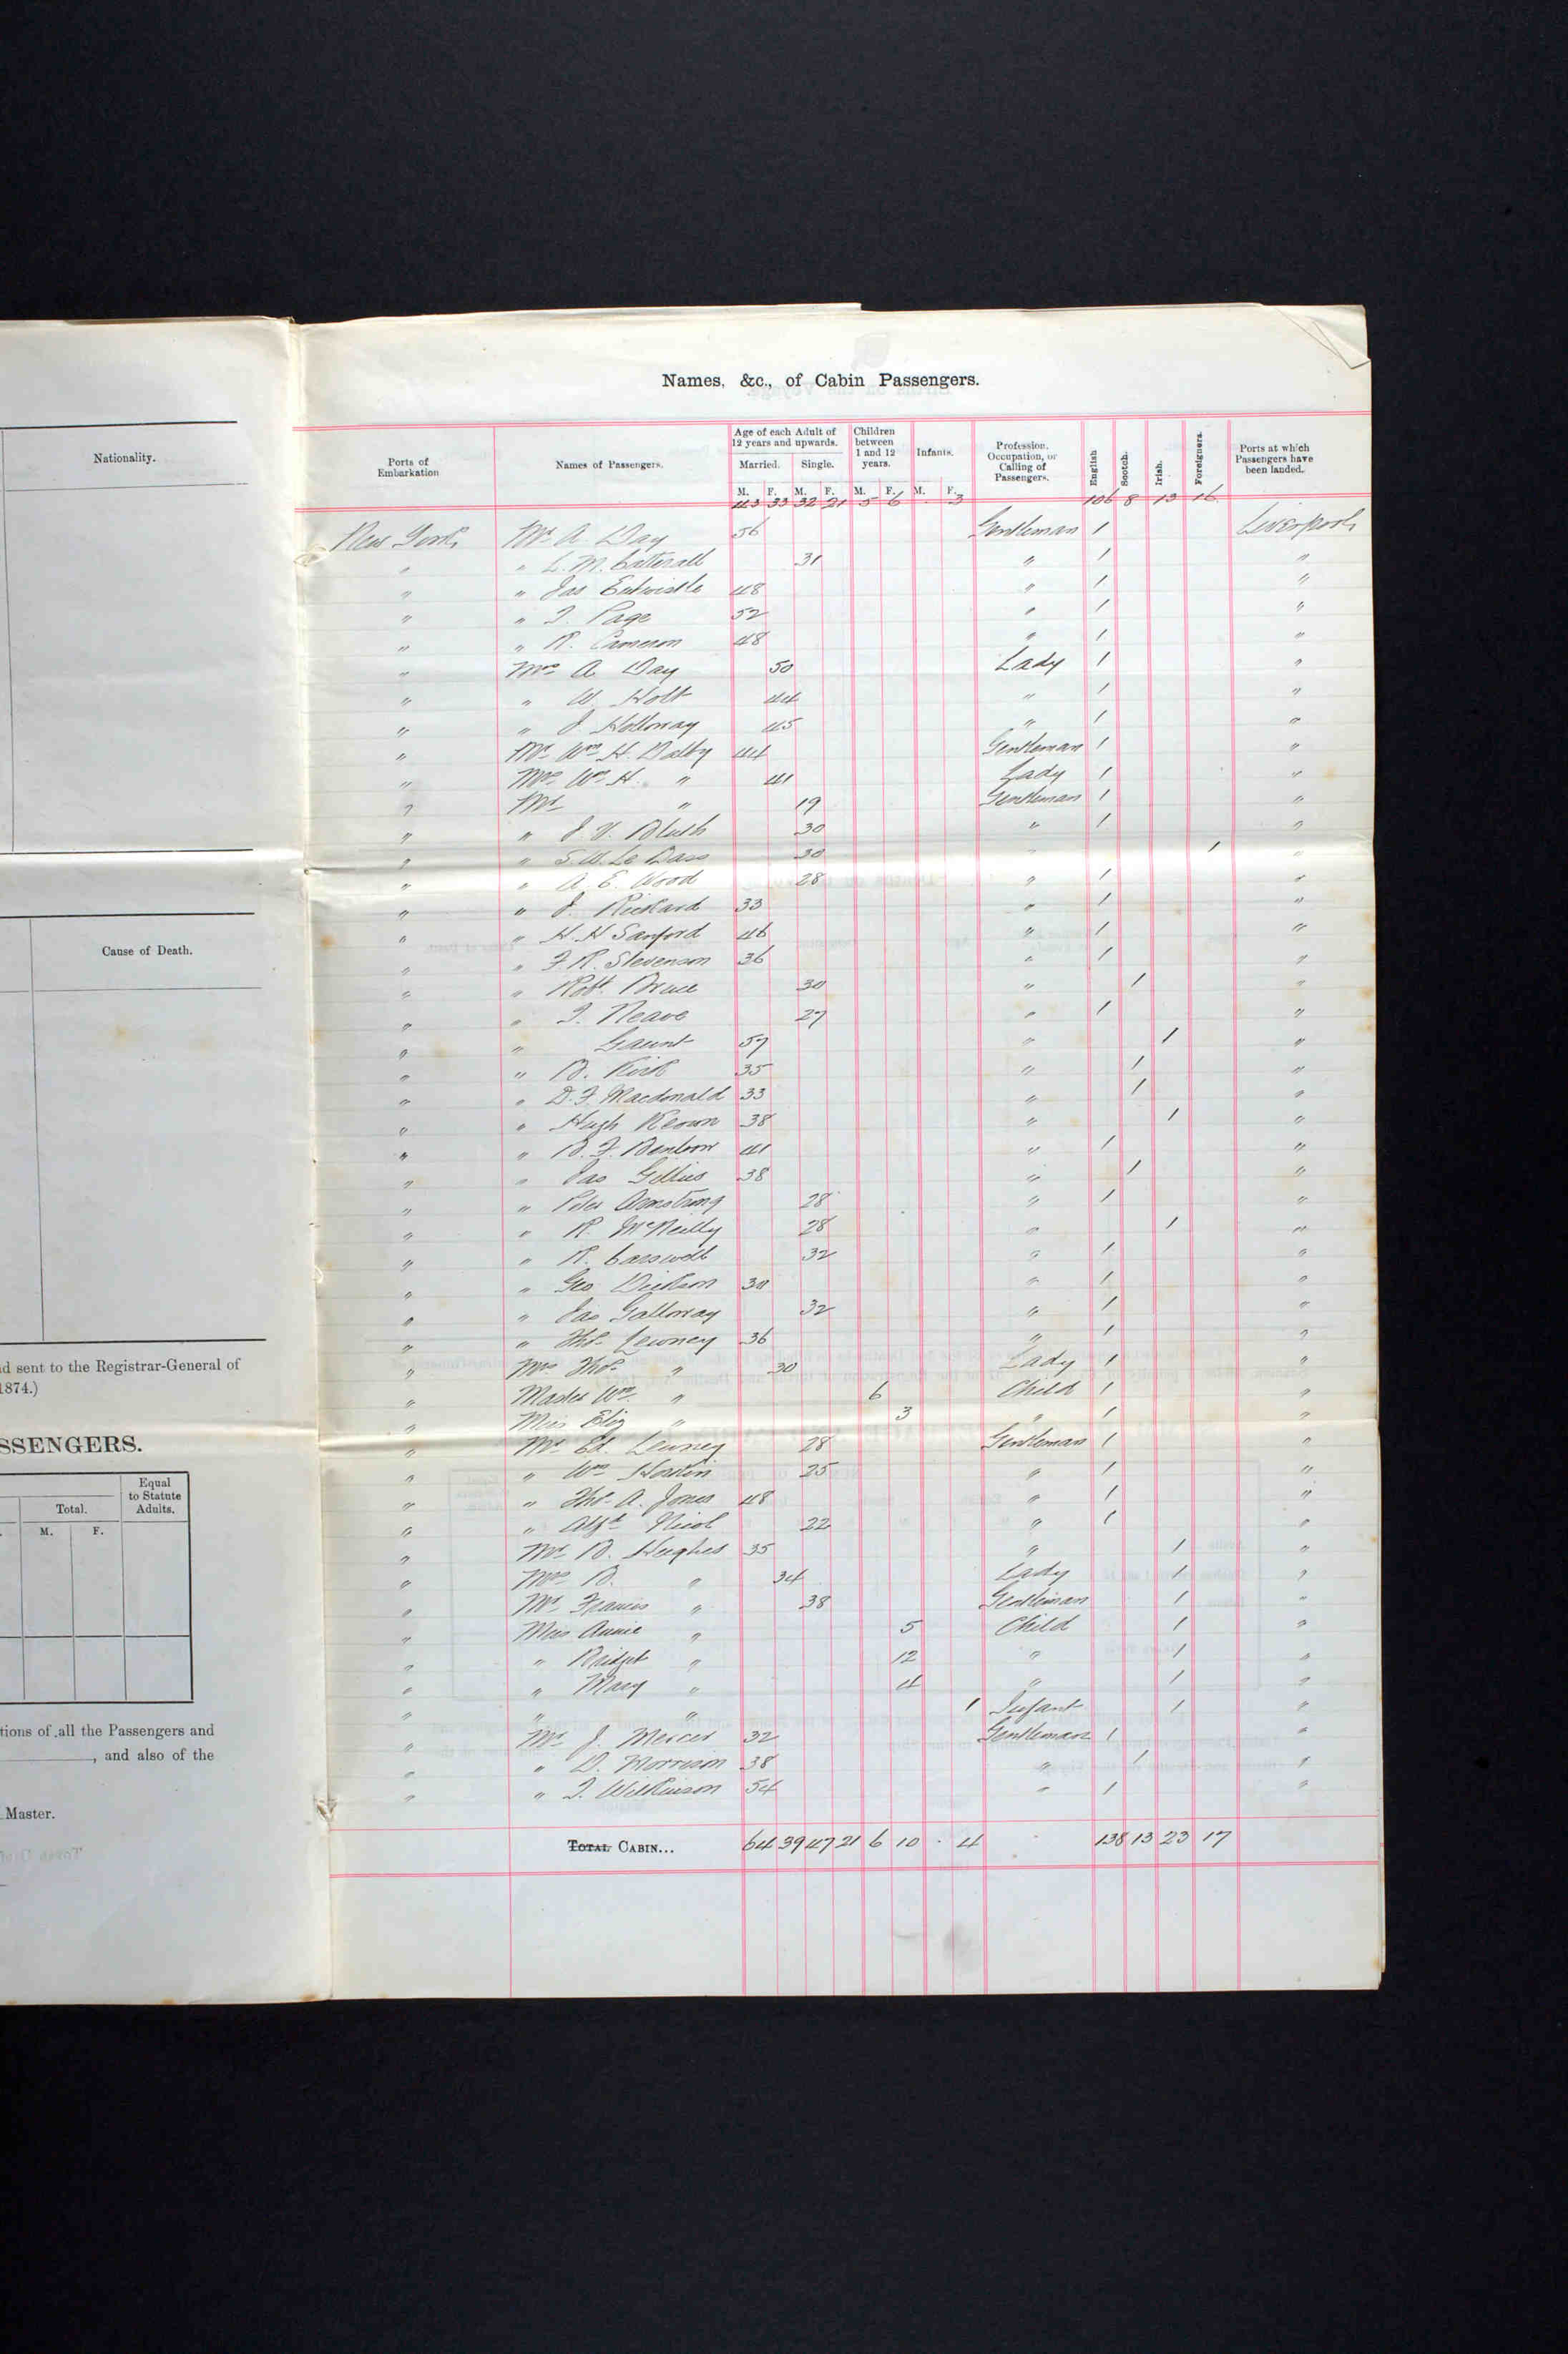 Names, &c., of Cabin Passengers.
Ports of Embarkation Names of Passengers. Age of each Adult of 12 years and upwards. Married. Single. Children between 1 and 12 years. Infants. Profession, Occupation, or Calling of Passengers. English Scotch. Irish. Foreigners. Ports at which Passengers have been landed.
M. F. M. F. M. F. M. F.
43 33 32 21 5 6 . 3 106 8 13 16
New York Mr A Day 56 Gentleman 1 Liverpool
" " L. M. Catterall 31 " 1 "
" " Jas Entwistle 48 " 1 "
" " T. Page 52 " 1 "
" " R. Cameron 48 " 1 "
" Mrs A Day 50 Lady 1 "
" " W. Holt 44 " 1 "
" " J Holloway 45 " 1 "
" Mr Wm H. Dalby 44 Gentleman 1 "
" Mrs Wm H. " 41 Lady 1 "
" Mr " 19 Gentleman 1 "
" " J. V. 30 " 1 "
" " S. W. Le 30 " 1 "
" " A. E. Wood 28 " 1 "
" " J. Rickard 33 " 1 "
" " H. H Sanford 46 " 1 "
" " F. R. Stevenson 36 " 1 "
" " Robt Bruce 30 " 1 "
" " T. Neave 27 " 1 "
" " Gaunt 57 " 1 "
" " B. Kirk 35 " 1 "
" " D. F. Macdonald 33 " 1 "
" " Hugh Keown 38 " 1 "
" " B. F. Benbow 41 " 1 "
" " Jas Gillies 38 " 1 "
" " Peter Armstrong 28 " 1 "
" " R. McNeilly 28 " 1 "
" " R. Carswell 32 " 1 "
" " Geo Dickson 30 " 1 "
" " Jas Galloway 32 " 1 "
" " Thos Lewney 36 " 1 "
" Mrs Thos " 30 Lady 1 "
" Master Wm " 6 Child 1 "
" Miss Eliz " 3 " 1 "
" Mr Ed. Lewney 28 Gentleman 1 "
" " Wm 25 " 1 "
" " Thos A. Jones 48 " 1 "
" " Alfd Nicol 22 " 1 "
" Mr B. Hughes 35 " 1 "
" Mrs B. " 34 Lady 1 "
" Mr Francis " 38 Gentleman 1 "
" Miss Annie " 5 Child 1 "
" " Bridget " 12 " 1 "
" " Mary " 4 " 1 "
" " " 1 Infant 1 "
" Mr J. Mercer 32 Gentleman 1 "
" " D. Morrison 38 " 1 "
" " T. Wilkinson 54 " 1 "
Total Cabin... 64 39 47 21 6 10 . 4 138 13 23 17
Nationality.
Cause of Death.
d sent to the Registrar-General of
1874.)
SSENGERS.
Total. Equal to Statute Adults.
M. F.
tions of all the Passengers and
, and also of the
Master.